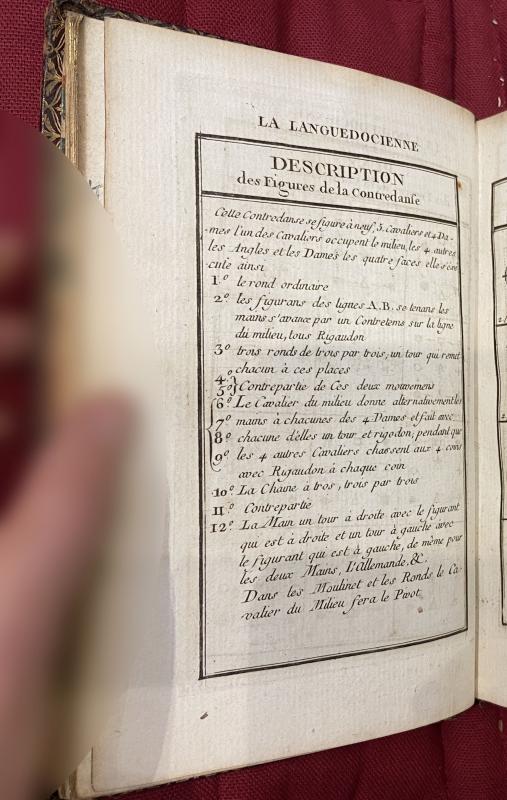 LA LANGUEDOCIENNE
DESCRIPTION
des Figures de la Contredanse
Cette Contredanse se figure à neuf, 5. Cavaliers et 4 Da-
mes l'un des Cavaliers occupent le milieu, les 4 autres
les Angles et les Dames les quatre faces elle s'éxe
cute ainsi
1.º le rond ordinaire
2º les figurans des lignes A.B. se tenans les
mains s'avance par un Contretems sur la ligne
du milieu, tous Rigaudon
3º trois ronds de trois par trois, un tour qui remet
chacun à ces places
4.º
5º} Contrepartie de Ces deux mouvemens
6º Le Cavalier du milieu donne alternativement les
7º mains à chacunes des 4 Dames et fait avec
8º chacune d'elles un tour et rigodon, pendant que
9º les 4 autres Cavaliers chassent aux 4 coins
avec Rigaudon à chaque coin
10º. La Chaine à tros, trois par trois
11º Contrepartie
12º La Main un tour à droite avec le figurant
qui est à droite et un tour à gauche avec
le figurant qui est à gauche, de même pour
les deux Mains, L'Allemande, &c.
Dans les Moulinet et les Ronds le Ca-
valier du Milieu fera le Pivot